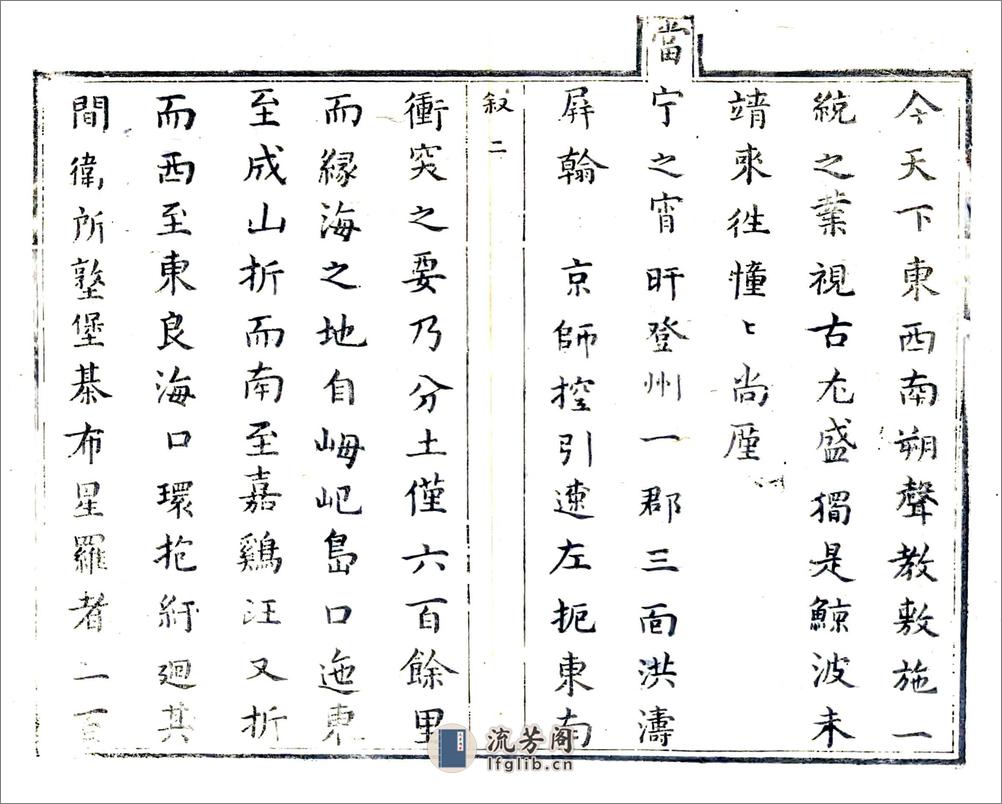 今天下東西南朔聲教敷施一
統之業視古尤盛獨是鯨波未
靖來徃憧〻尚厪
當
宁之宵旰登州一郡三面洪濤
屏翰　京師控引遼左扼東南
叙二
衝突之要乃分土僅六百餘里
而緣海之地自㟂屺島口迤東
至成山折而南至嘉鷄汪又折
而西至東良海口環抱紆廻其
間衛所墪堡棊布星羅者一百
流芳阁
lfglib.cn